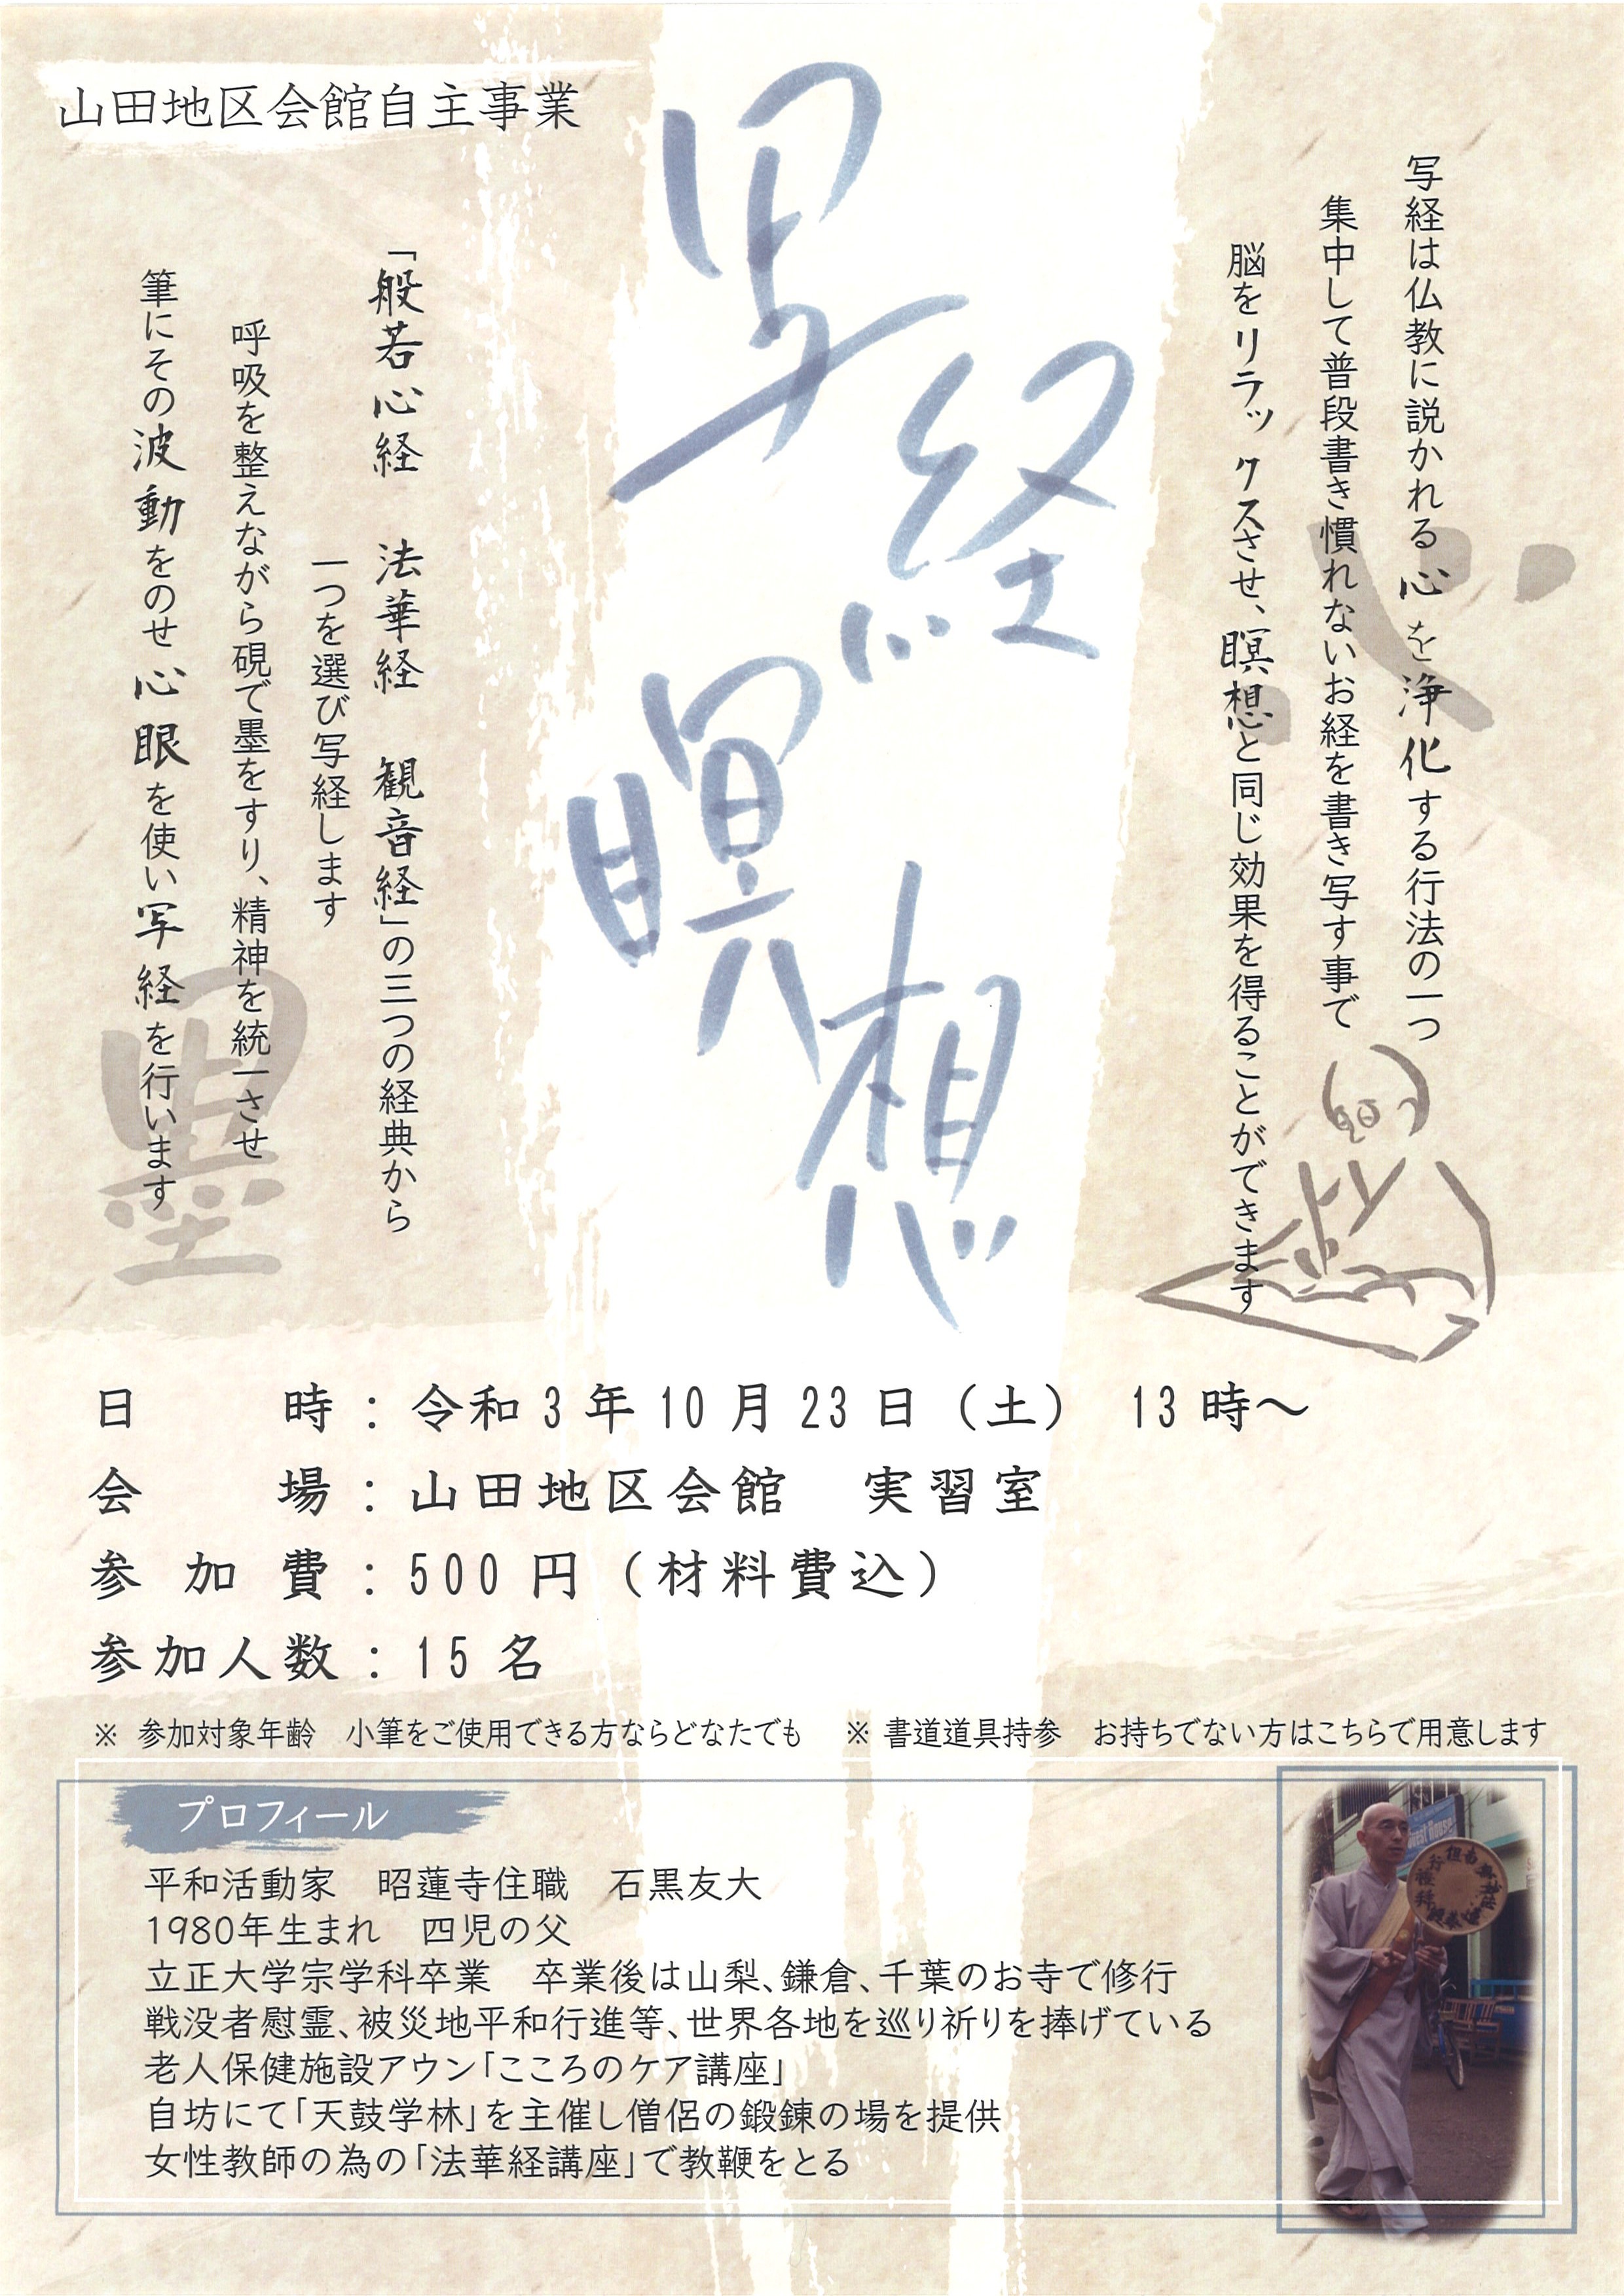 山田地区会館自主事業
写経
瞑想
写経は仏教に説かれる心を浄化する行法の一つ
集中して普段書き慣れないお経を書き写す事で
脳をリラックスさせ、瞑想と同じ効果を得ることができます
心
「般若心経　法華経　観音経」の三つの経典から
一つを選び写経します
呼吸を整えながら硯で墨をすり、精神を統一させ
筆にその波動をのせ心眼を使い写経を行います
墨
日時：令和3年10月23日（土）　13時～
会場：山田地区会館　実習室
参加費：500円（材料費込）
参加人数：15名
※ 参加対象年齢　小筆をご使用できる方ならどなたでも　※ 書道道具持参　お持ちでない方はこちらで用意します
プロフィール
平和活動家　昭蓮寺住職　石黒友大
1980年生まれ　四児の父
立正大学宗学科卒業　卒業後は山梨、鎌倉、千葉のお寺で修行
戦没者慰霊、被災地平和行進等、世界各地を巡り祈りを捧げている
老人保健施設アウン「こころのケア講座」
自坊にて「天鼓学林」を主催し僧侶の鍛錬の場を提供
女性教師の為の「法華経講座」で教鞭をとる
Guest House